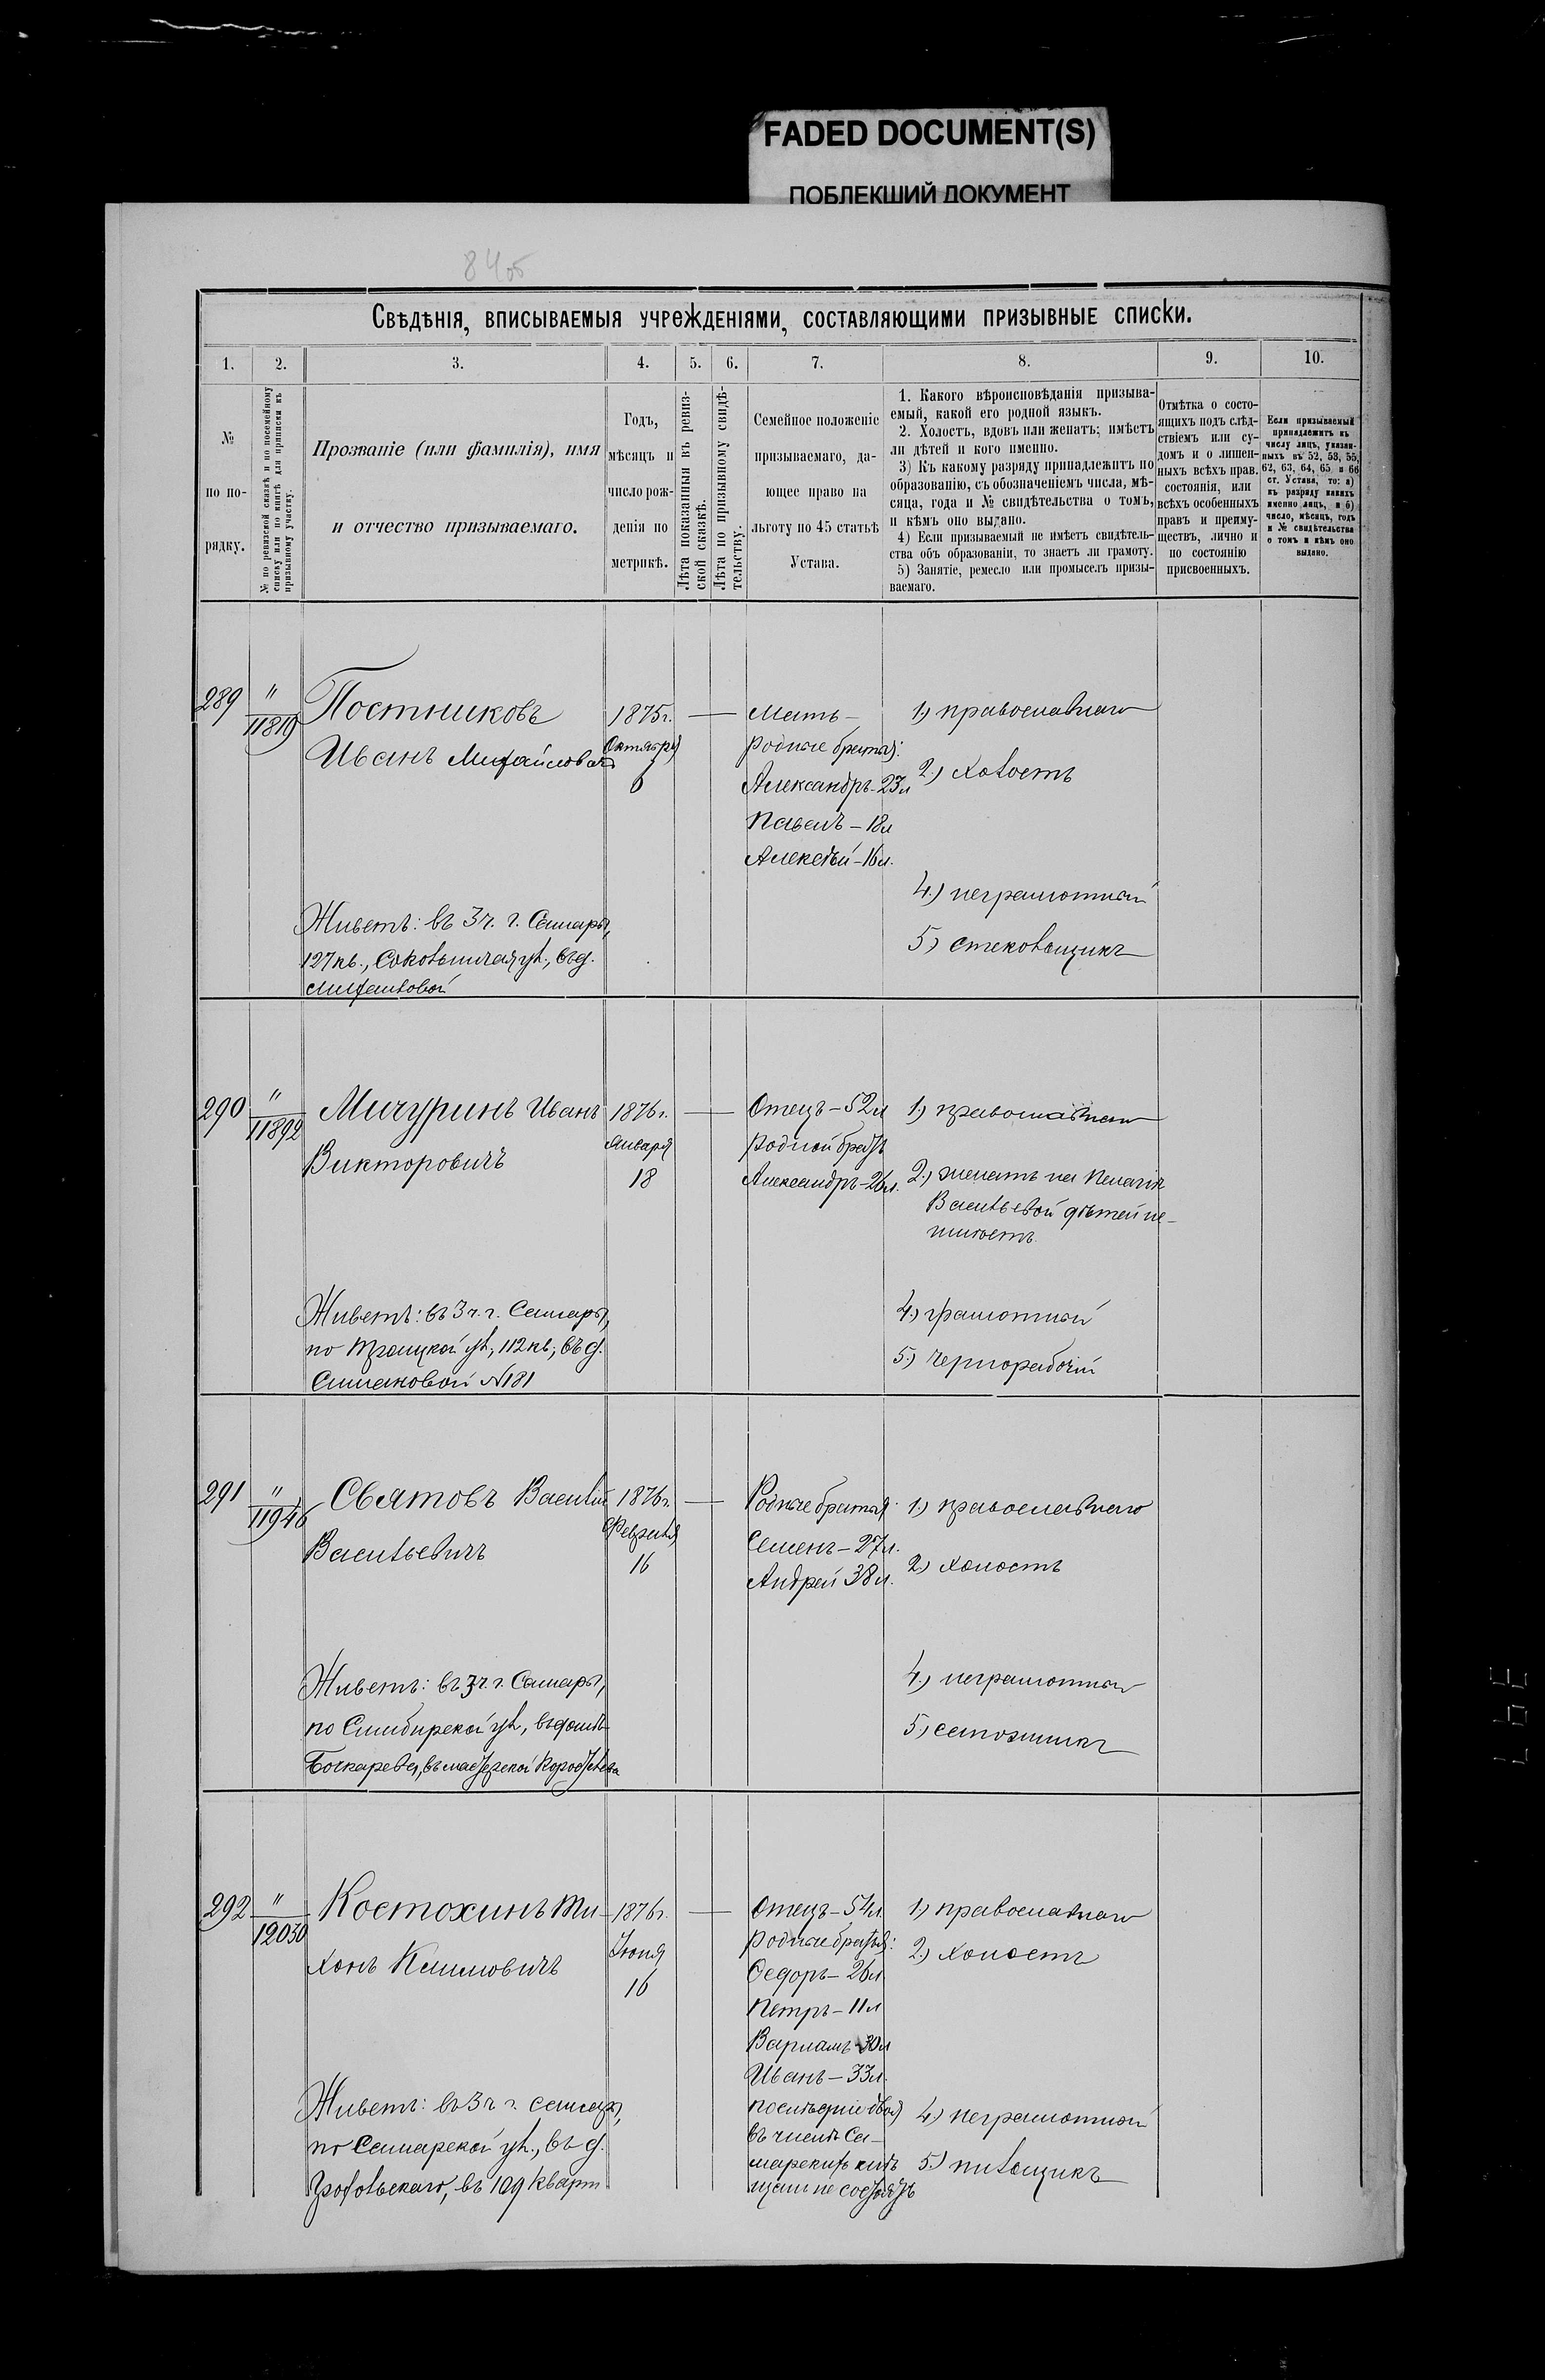 FADED DOCUMENT(S)
ПОБЛЕКШИЙ ДОКУМЕНТ
84об
Свѣдѣнія, вписываемыя учрежденіями, составляющими призывные списки.
1. 2. 3. 4. 5. 6. 7. 8. 9. 10.
№
по по-
рядку.
№ по ревизской сказкѣ и по посемейному
списку или по книгѣ для приписки къ
призывному участку.
Прозваніе (или фамилія), имя
и отчество призываемаго.
Годъ,
мѣсяцъ и
число рож-
денія по
метрикѣ.
Лѣта показанныя въ ревиз-
ской сказкѣ.
Лѣта по призывному свидѣ-
тельству.
Семейное положеніе
призываемаго, да-
ющее право на
льготу по 45 статьѣ
Устава.
1. Какого вѣроисповѣданія призыва-
емый, какой его родной языкъ.
2. Холостъ, вдовъ или женатъ; имѣетъ
ли дѣтей и кого именно.
3) Къ какому разряду принадлежитъ по
образованію, съ обозначеніемъ числа, мѣ-
сяца, года и № свидѣтельства о томъ,
и кѣмъ оно выдано.
4) Если призываемый не имѣетъ свидѣтель-
ства объ образованіи, то знаетъ ли грамоту.
5) Занятіе, ремесло или промыселъ призы-
ваемаго.
Отмѣтка о состо-
ящихъ подъ слѣд-
ствіемъ или су-
домъ и о лишен-
ныхъ всѣхъ прав.
состоянія, или
всѣхъ особенныхъ
правъ и преиму-
ществъ, лично и
по состоянію
присвоенныхъ.
Если призываемый
принадлежитъ къ
числу лицъ, указан-
ныхъ въ 52, 53, 55,
62, 63, 64, 65 и 66
ст. Устава, то: а)
къ разряду какихъ
именно лицъ, и б)
число, мѣсяцъ, годъ
и № свидѣтельства
о томъ и кѣмъ оно
выдано.
289
"
11819
Постниковъ
Иванъ Михайловъ
1875г.
Октября
6
—
Мать –
родные братья:
Александръ - 23л
Павелъ – 18л
Алексѣй – 16л.
1.) православнаго
2.) холостъ
4.) неграмотный
5.) стекольщикъ
Живетъ: въ 3 ч. г. Самары,
127 кв., Сокольничая ул., въ д.
290
"
11892
Мичуринъ Иванъ
Викторовичъ
1876г.
Января
18
—
Отецъ – 52л
родной братъ
Александръ – 26л.
1.) православнаго
2.) женатъ на Пелагіи
Васильевой дѣтей не-
имѣетъ
4.) грамотный
5.) чернорабочій
Живетъ: въ 3 ч. г. Самары,
по Троицкой ул., 112 кв., въ д.
Симаковой №181
291
"
11946
Святовъ Василій
Васильевичъ
1876г.
Февраля
16
—
Родные братья:
Семенъ – 27л.
Андрей 38л.
1.) православнаго
2.) холостъ
4.) неграмотный
5.) сапожникъ
Живетъ: въ 3 ч. г. Самары,
по Симбирской ул., въ домѣ
Бочкарева, въ мастерской
292
"
12030
Костохинъ Ти-
хонъ Климовичъ
1876г.
Іюня
16
—
Отецъ – 54л
родные братья:
Ѳедоръ – 26л
Петръ – 11л
Варламъ – 30л
Иванъ – 33л
послѣдніе двое
въ числѣ Са-
марскихъ мѣ
щанъ не состоятъ
1.) православнаго
2.) холостъ
4.) неграмотный
5.) пильщикъ
Живетъ: въ 3 ч г. Самары,
по Самарской ул., въ д.
въ 109 кварт